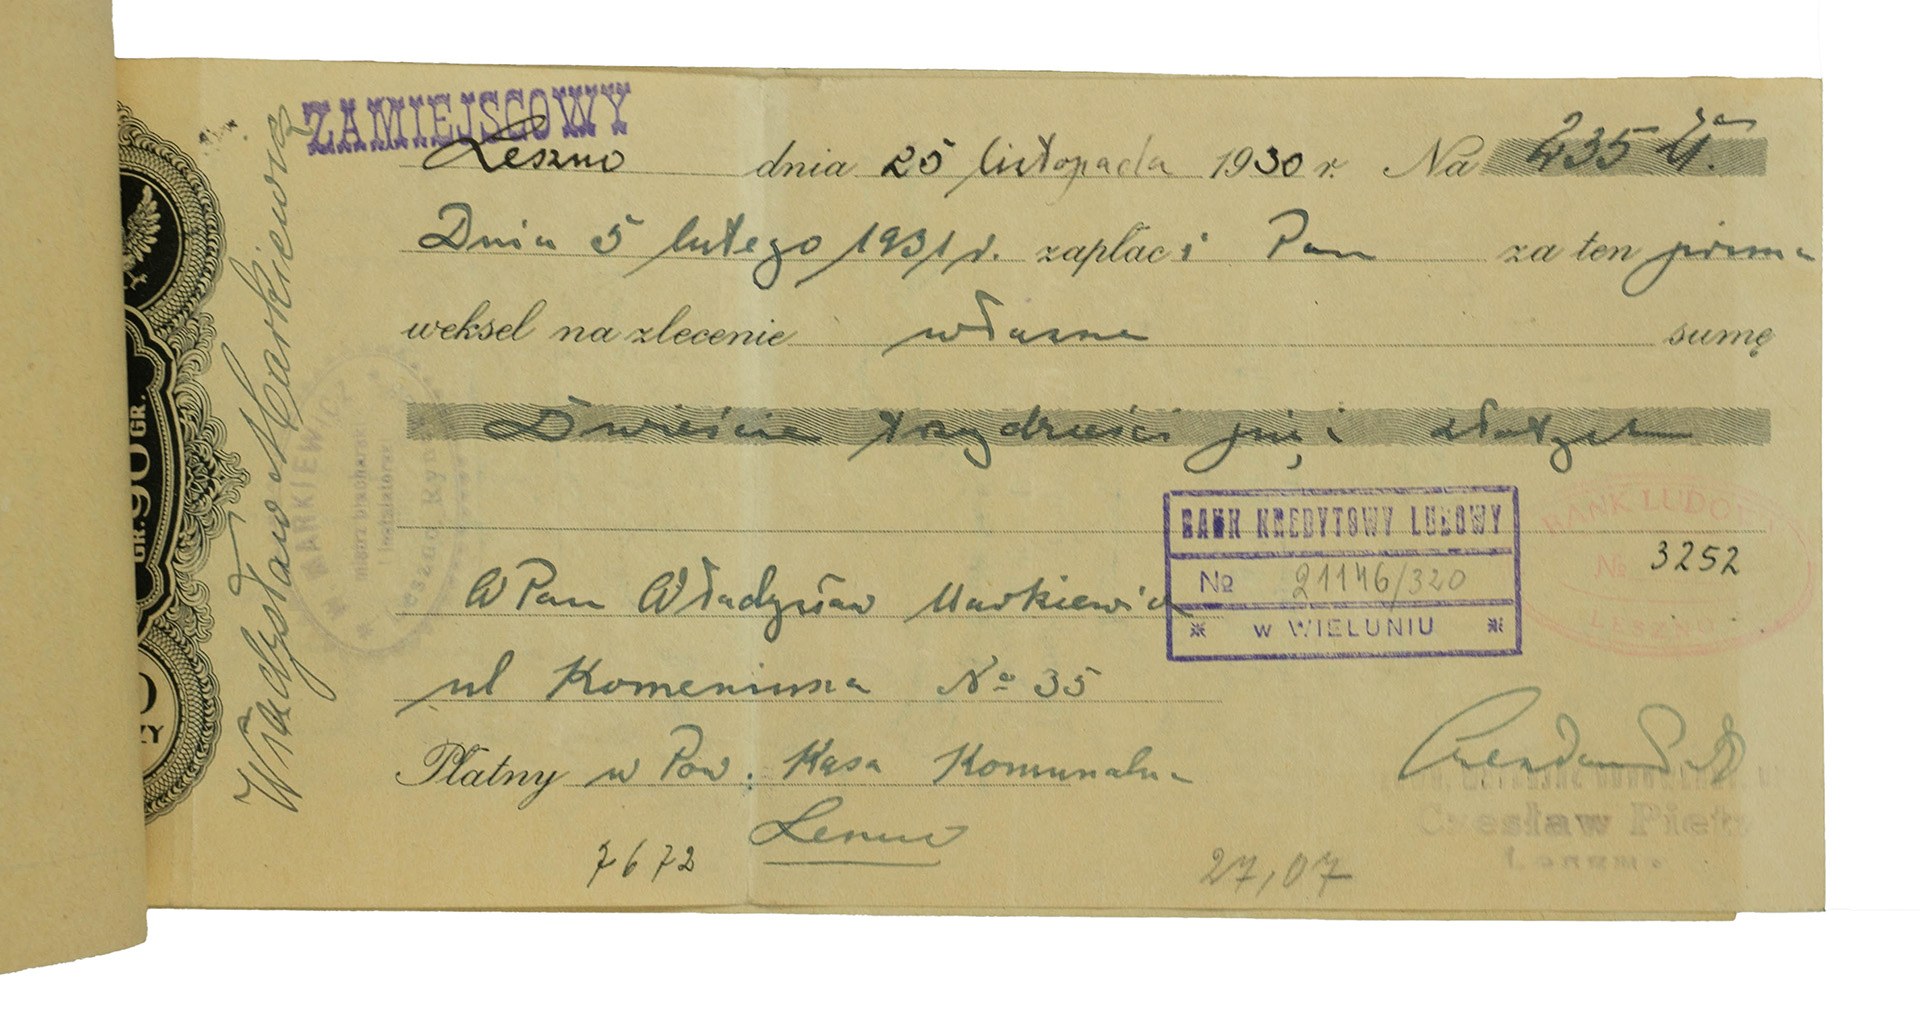 ZAMIEJSCOWY
Leszno dnia 25 listopada 1930 r. Na 235 Zł.
Dnia 5 lutego 1931 r. zapłaci Pan za ten prima
weksel na zlecenie własne sumę
Dwieście trzydzieści pięć złotych
BANK KREDYTOWY LUDOWY
No 21146/320
w WIELUNIU
BANK LUDOWY
No 3252
LESZNO
WPan Władysław Markiewicz
ul Komeniusza No 35
Płatny w Pow. Kasa Komunalna
Leszno
7672
27,07
Czesław Piet
Władysław Markiewicz
MARKIEWICZ
mistrz blacharski
i instalator
Leszno Rynek
GR. 90 GR.
ZY